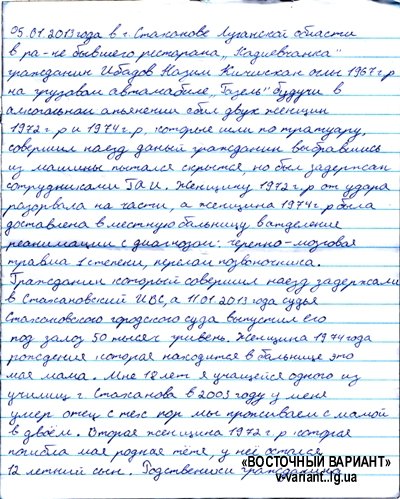 05.01.2013 года в г. Стаханове Луганской области
в ра-не бывшего ресторана „Кадиевчанка"
гражданин Ибадов Назим оглы 1967 г.р
на грузовом автомобиле „Газель" будучи в
алкогольном опьянении сбил двух женщин
1972 г.р и 1974 г.р, которые шли по тратуару,
совершил наезд даный гражданин выбравшись
из машины пытался скрытся, но был задержан
сотрудниками ГАИ. Женщину 1972 г.р от удара
разорвала на части, а женщина 1974 г.р была
доставлена в местную бальницу в атделение
реанимации с диагнозом: черепно-мозговая
травма 1 степени, перелом позвоночника.
Гражданин который совершил наезд задержали
в Стахановский ИВС, а 11.01.2013 года судья
Стахановского городского суда выпустил его
под залог 50 тысяч гривень. Женщина 1974 года
рождения которая находится в бальнице это
моя мама. Мне 18 лет я учащейся одного из
училищ г. Стаханова в 2003 году у меня
умер отец с тех пор мы проживаем с мамой
в двоём. Вторая женщина 1972 г.р которая
погибла моя родная тётя, у неё остался
12 летний сын. Родственики гражданина
«ВОСТОЧНЫЙ ВАРИАНТ»
v-variant.lg.ua